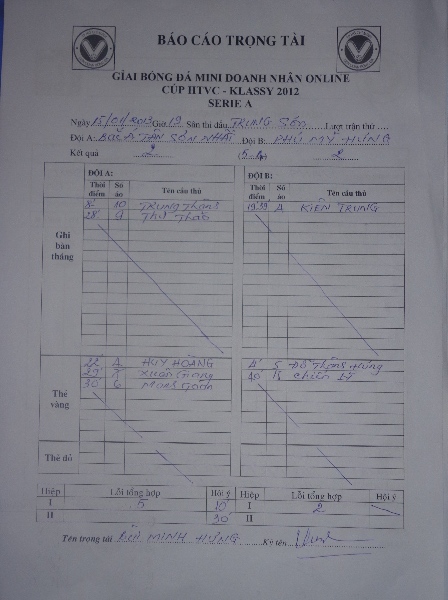 BÁO CÁO TRỌNG TÀI
GIẢI BÓNG ĐÁ MINI DOANH NHÂN ONLINE
CÚP HTVC - KLASSY 2012
SERIE A
Ngày 15/01/2013 Giờ 19 Sân thi đấu TRUNG SƠN Lượt trận thứ
Đội A: TÂN SƠN NHẤT Đội B: PHÚ MỸ HƯNG
Kết quả 2 2
ĐỘI A: ĐỘI B:
Thời điểm Số áo Tên cầu thủ Thời điểm Số áo Tên cầu thủ
Ghi bàn thắng
8' 10 TRUNG THÔNG 19' 39 4 KIÊN TRUNG
28' 9 THU THẢO
Thẻ vàng
22' 4 HUY HOÀNG 4' 5 ĐỖ THÔNG HÙNG
29' 8 XUÂN GIANG 40' 15 CHIẾN
30' 6
Thẻ đỏ
Hiệp Lỗi tổng hợp Hội ý Hiệp Lỗi tổng hợp Hội ý
I 5 10' I 2
II 30' II
Tên trọng tài BÙI MINH HƯNG Ký tên